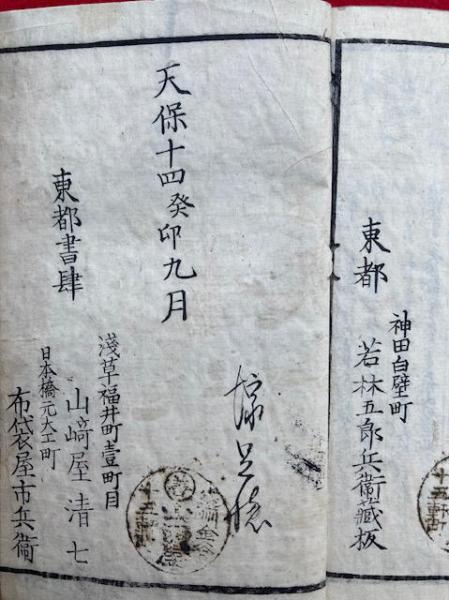 東都
神田白壁町
若林五郎兵衞藏板
天保十四癸卯九月
東都書肆
淺草福井町壹町目
山﨑屋清七
日本橋元大工町
布袋屋市兵衞